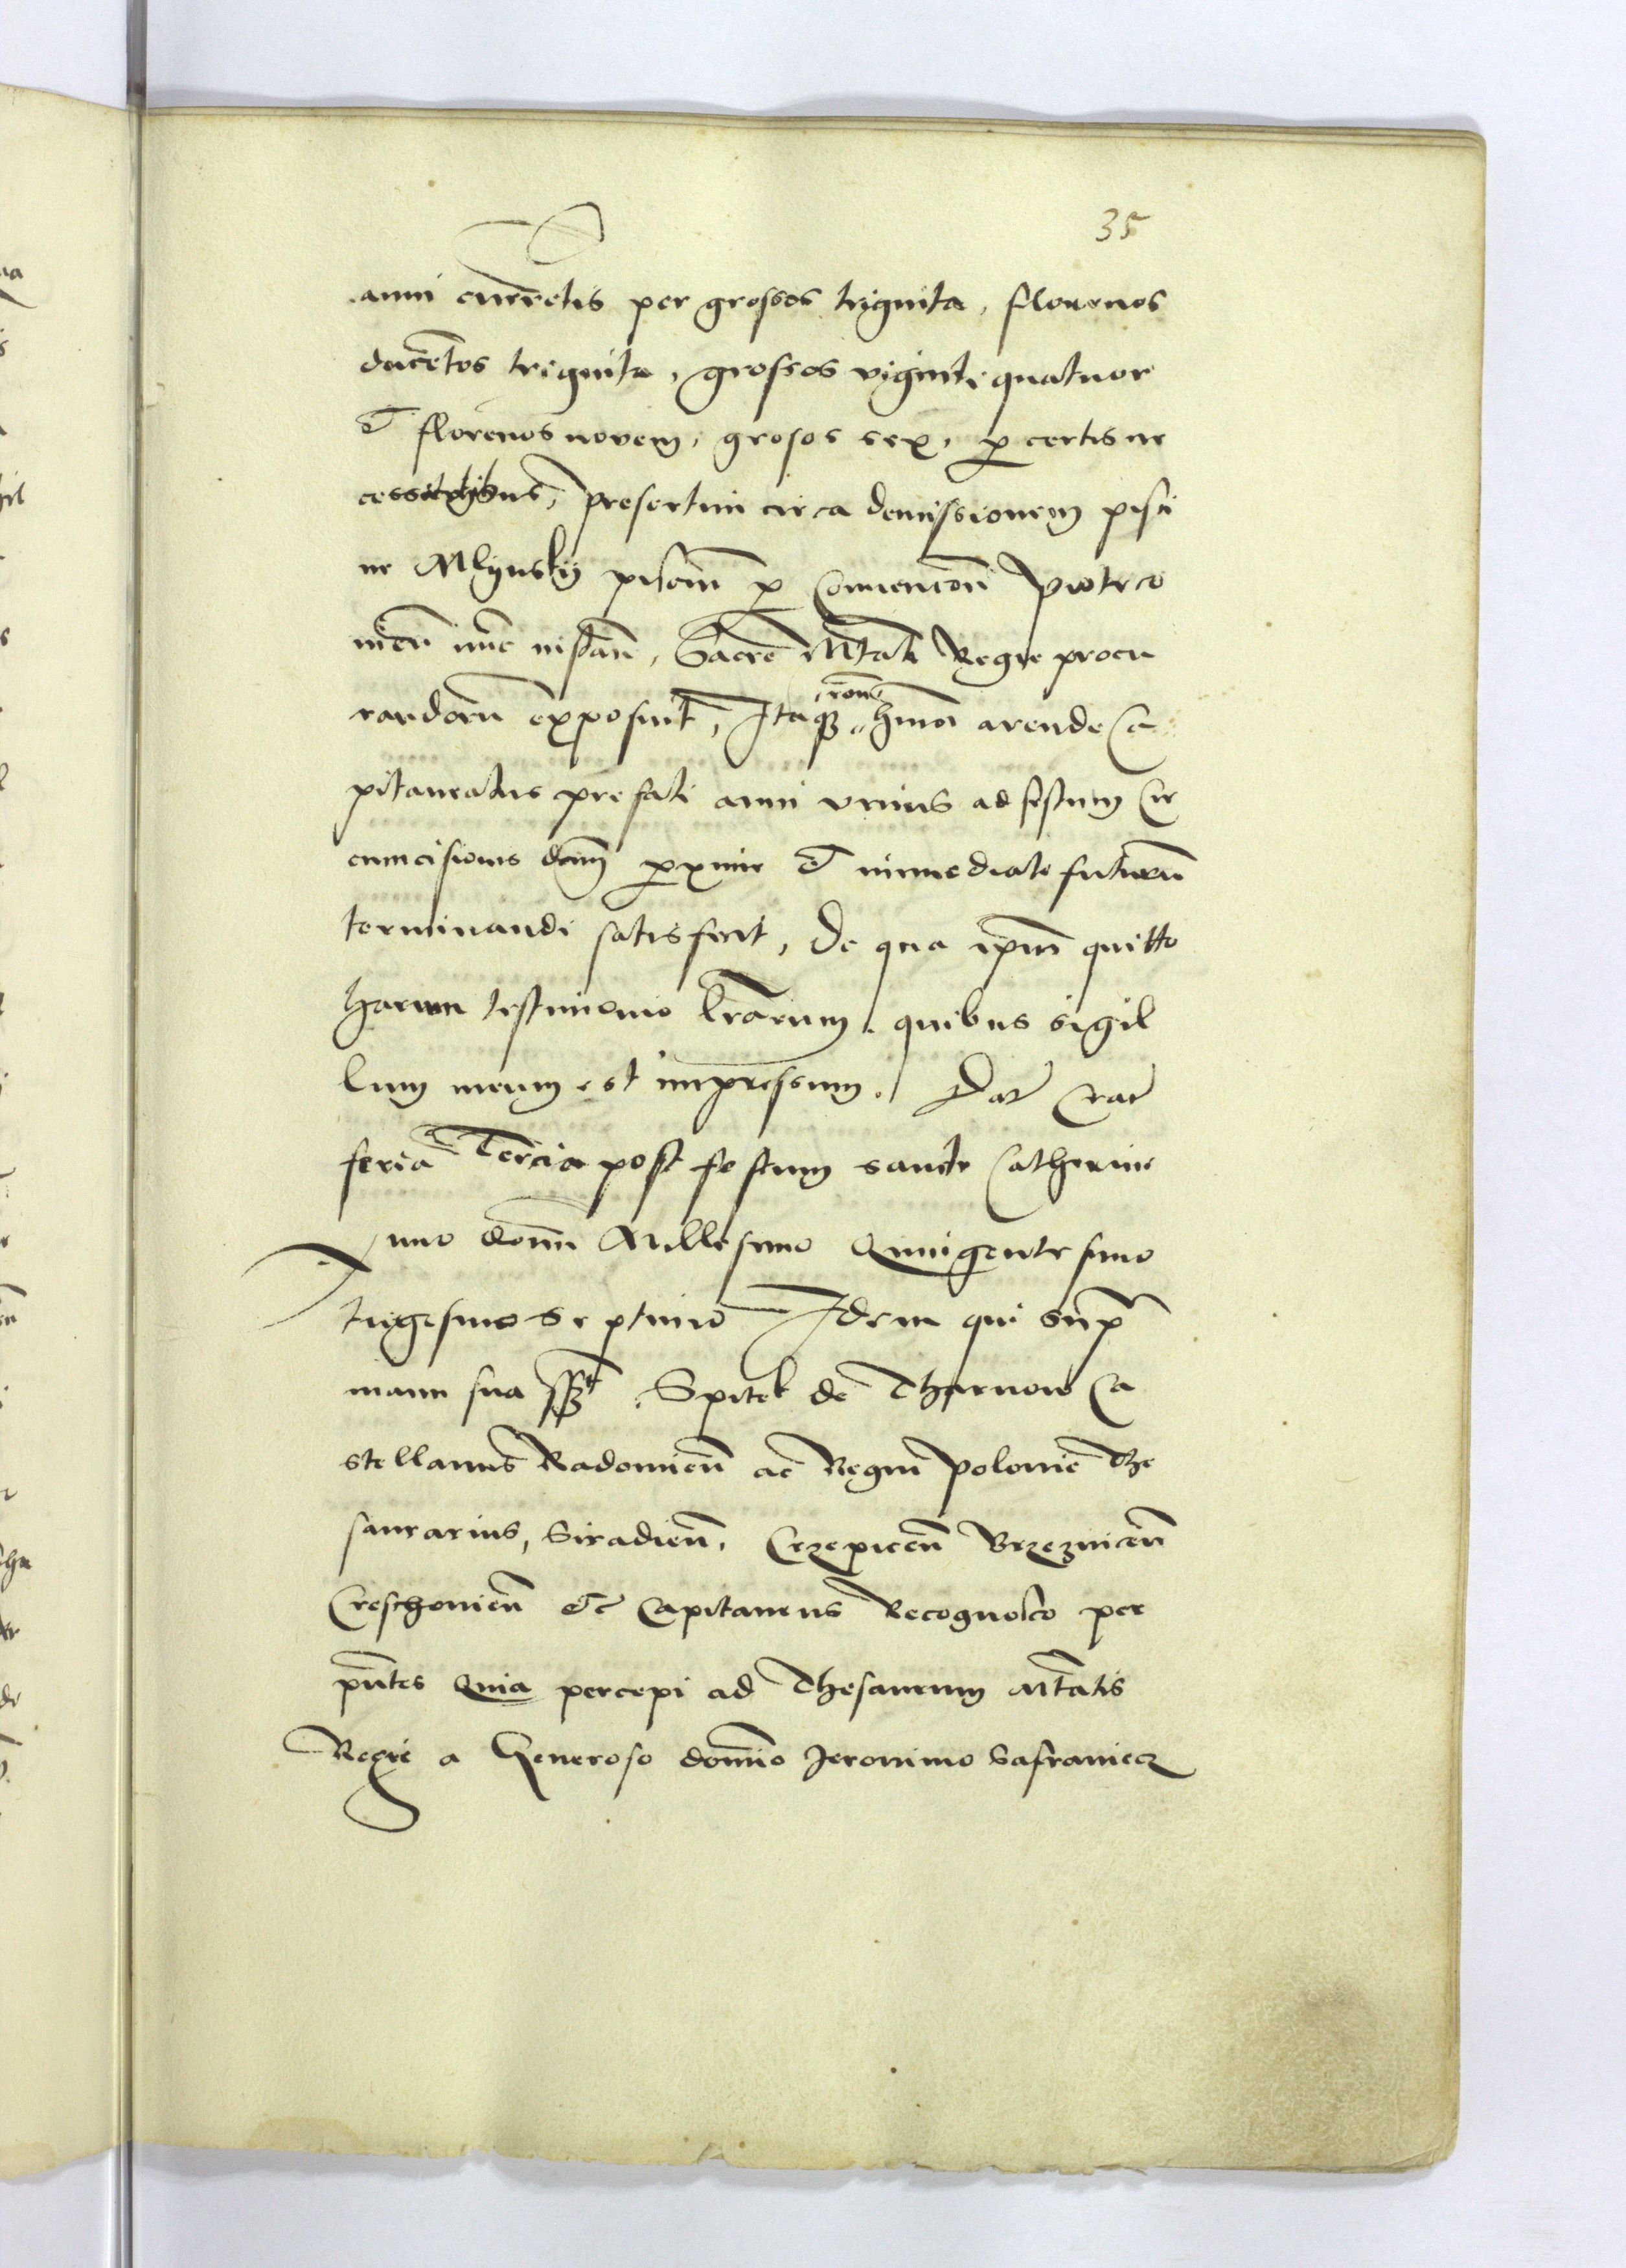 35
anni currētis per grossos triginta, florenos
ducētos triginta, grossos viginti quatuor
et florenos novem, grosos sex, p certis ne
cessitatibus, presertim circa demissionem pisci
ne Mlynsky piscām p Convencōn Piotrco
vieñ nūc instāñ, Sacre Mtati Regie procu
randoru exposuit, Itaque rōne hmōi arende Ca
pitaneatus prefati anni unius ad festum Cir
cumcisionis dnī proxime et immediate futurū
terminandi satisfecit, De qua ipm quitto
harum testimonio lrārum. quibus sigil
lum meum est impressum. Dat Crac
feria Tercia post festum sancte Catherine
Anno domī Millesimo Quingentesimo
trigesimo septimo Idem qui supra
manu sua sspt. Spitek de Tharnow Ca
stellanus Radomieñ ac Regni Polonie The
saurarius, Siradieñ, Crzepiceñ Brzezniceñ
Creschovieñ etc Capitaneus Recognosco per
pñtes Quia percepi ad Thesaurum Mtatis
Regie a Generoso domīo Jeronimo Safraniecz